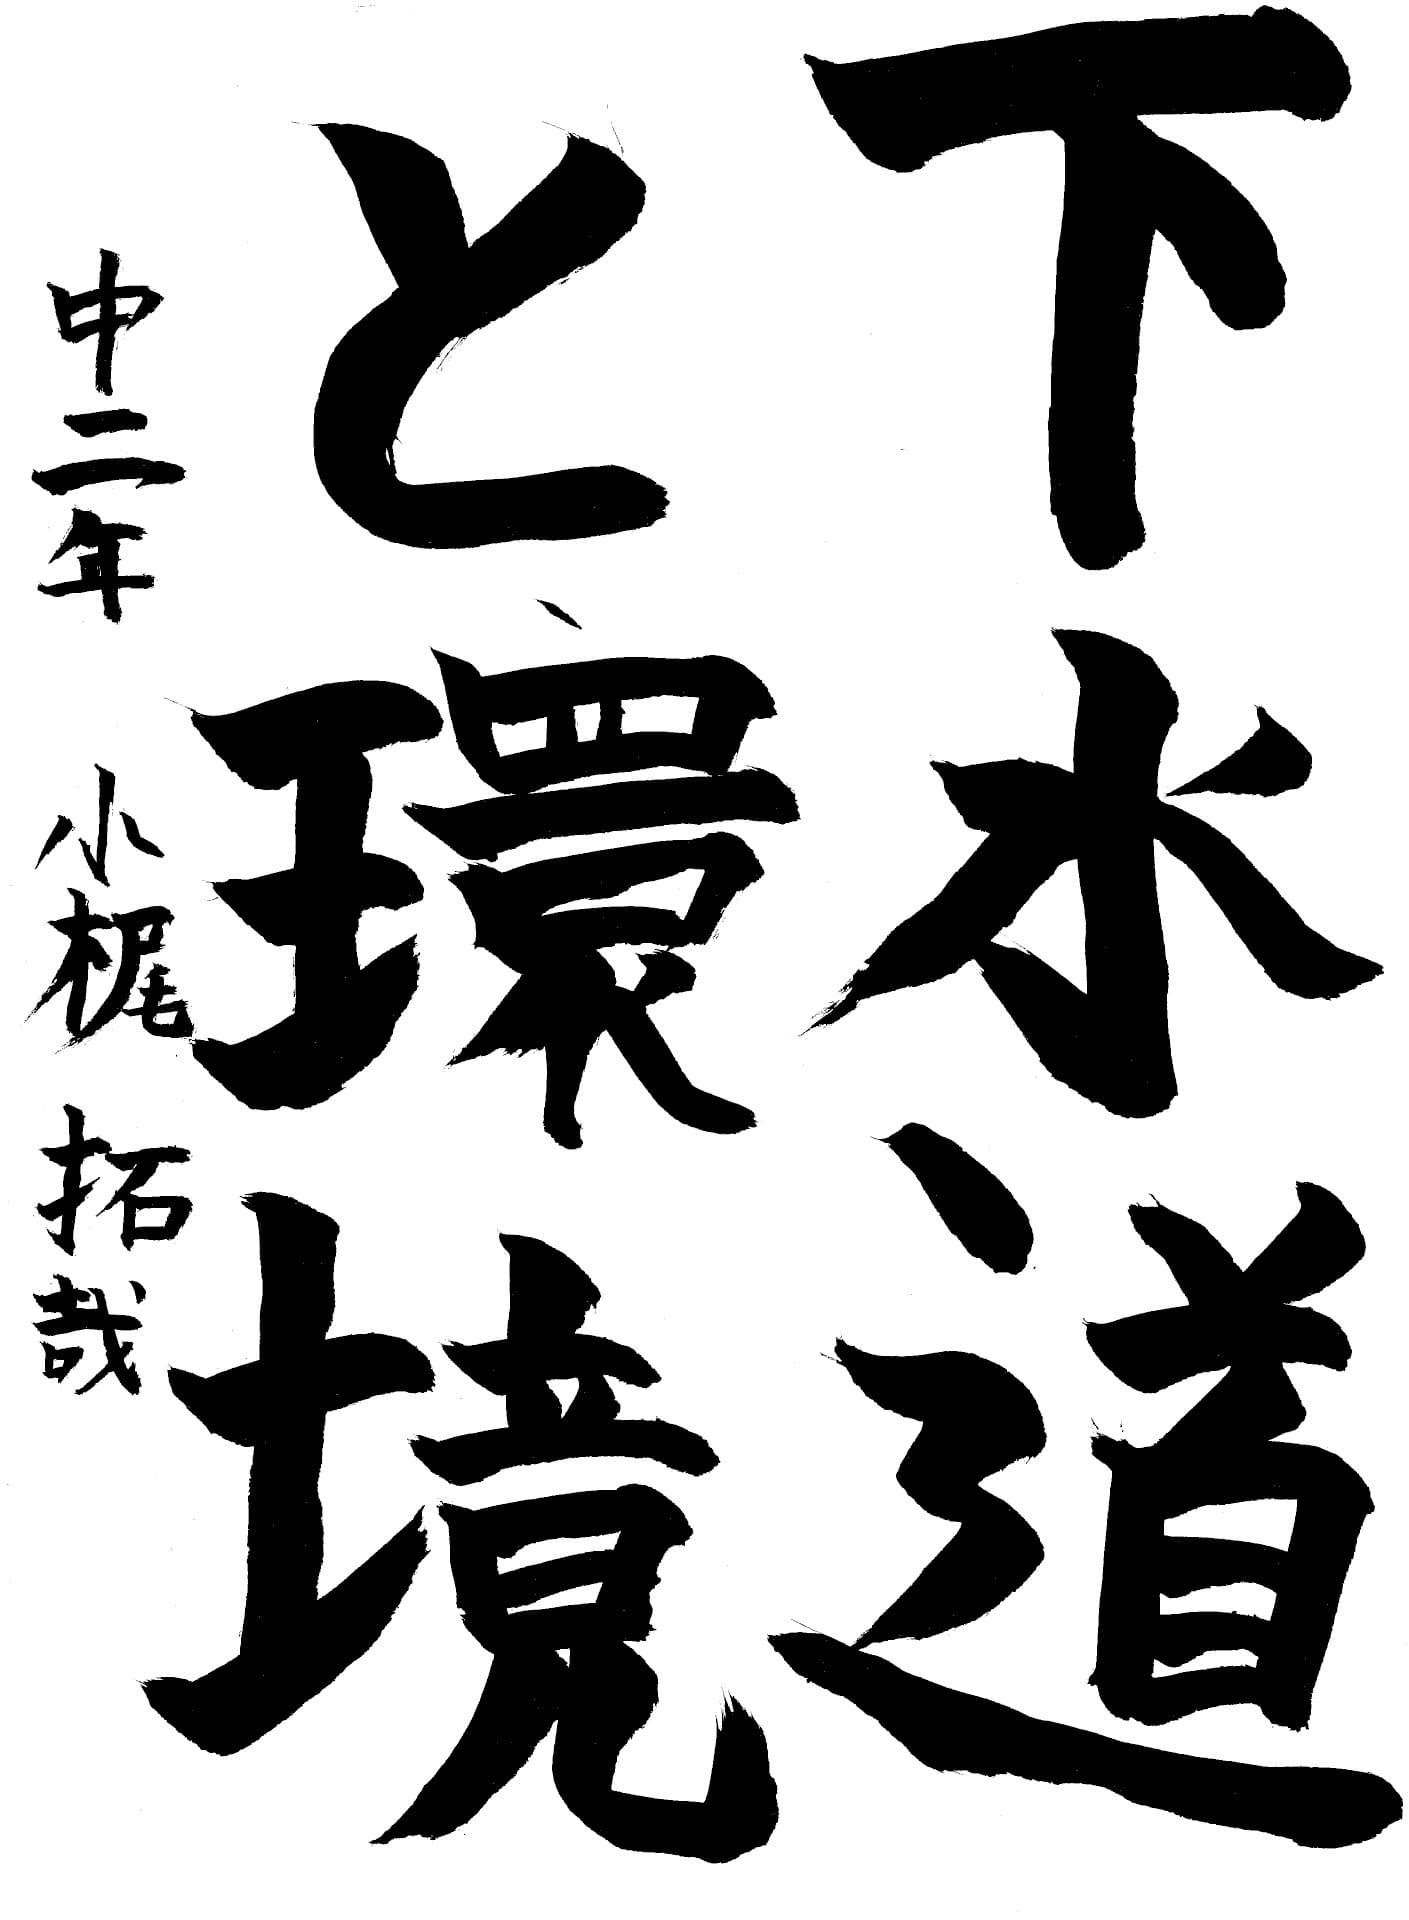 下水道
と環境
中二年 小梶 拓哉